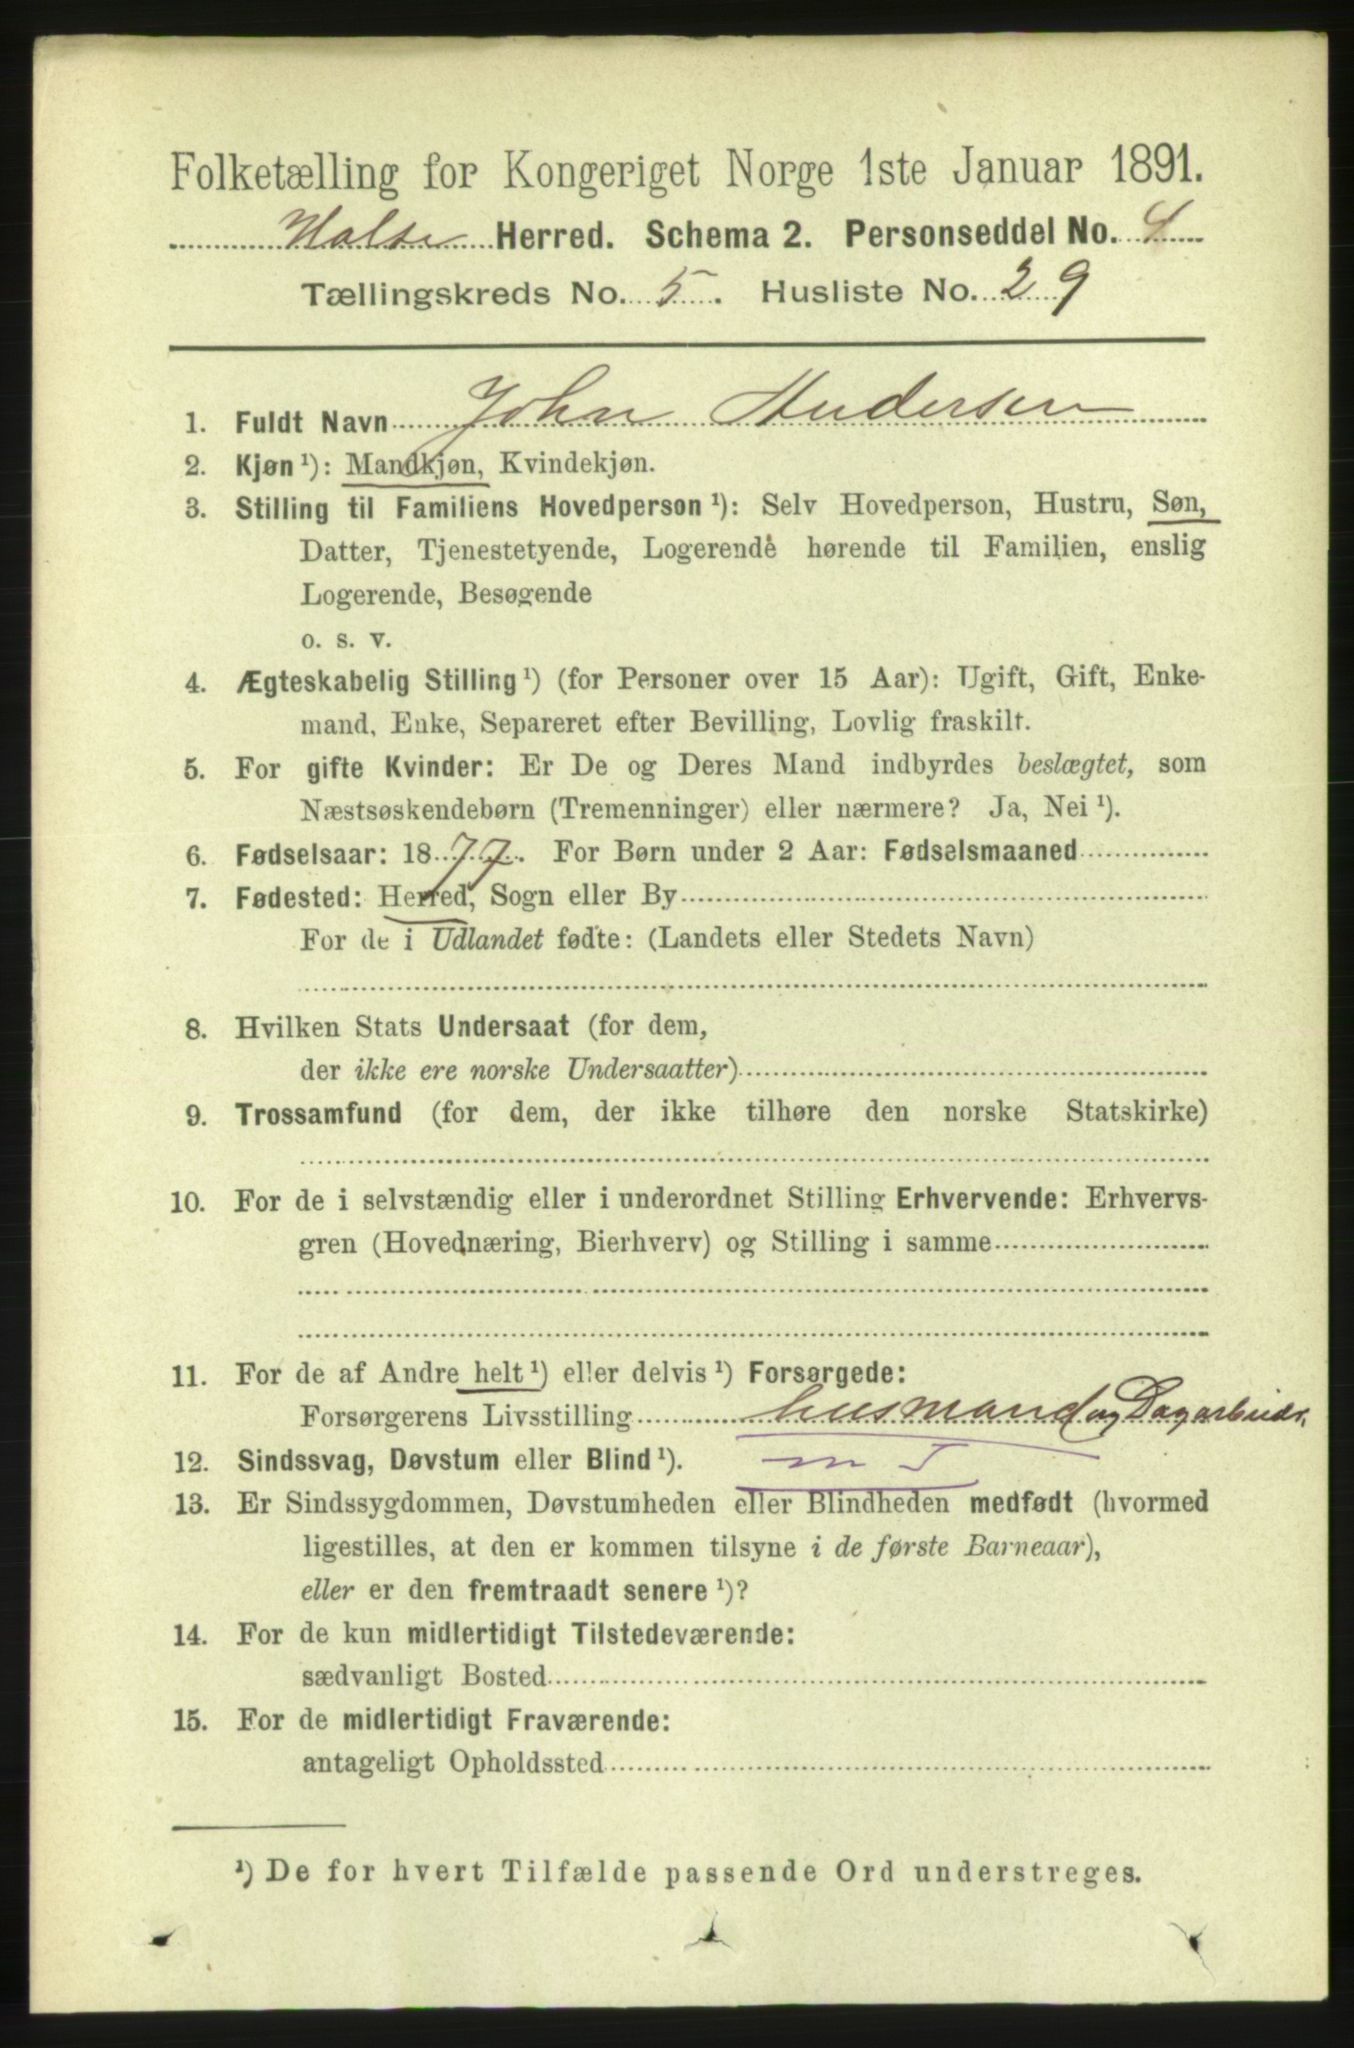 Folketælling for Kongeriget Norge 1ste Januar 1891.
Halse Herred. Schema 2. Personseddel No. 4
Tællingskreds No. 5. Husliste No. 29
1. Fuldt Navn John Andersen
2. Kjøn ¹): Mandkjøn, Kvindekjøn.
3. Stilling til Familiens Hovedperson ¹): Selv Hovedperson, Hustru, Søn,
Datter, Tjenestetyende, Logerende hørende til Familien, enslig
Logerende, Besøgende
o. s. v.
4. Ægteskabelig Stilling ¹) (for Personer over 15 Aar): Ugift, Gift, Enke-
mand, Enke, Separeret efter Bevilling, Lovlig fraskilt.
5. For gifte Kvinder: Er De og Deres Mand indbyrdes beslægtet, som
Næstsøskendebørn (Tremenninger) eller nærmere? Ja, Nei ¹).
6. Fødselsaar: 1877. For Børn under 2 Aar: Fødselsmaaned
7. Fødested: Herred, Sogn eller By
For de i Udlandet fødte: (Landets eller Stedets Navn)
8. Hvilken Stats Undersaat (for dem,
der ikke ere norske Undersaatter)
9. Trossamfund (for dem, der ikke tilhøre den norske Statskirke)
10. For de i selvstændig eller i underordnet Stilling Erhvervende: Erhvervs-
gren (Hovednæring, Bierhverv) og Stilling i samme
11. For de af Andre helt ¹) eller delvis ¹) Forsørgede:
Forsørgerens Livsstilling husmand og Dagarbeider
12. Sindssvag, Døvstum eller Blind ¹).
13. Er Sindssygdommen, Døvstumheden eller Blindheden medfødt (hvormed
ligestilles, at den er kommen tilsyne i de første Barneaar),
eller er den fremtraadt senere ¹)?
14. For de kun midlertidigt Tilstedeværende:
sædvanligt Bosted
15. For de midlertidigt Fraværende:
antageligt Opholdssted
¹) De for hvert Tilfælde passende Ord understreges.